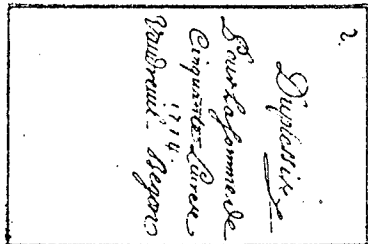 2.
Duplessix
Pour La somme de
Cinquante Livres
1714.
Vaudreuil - Begon